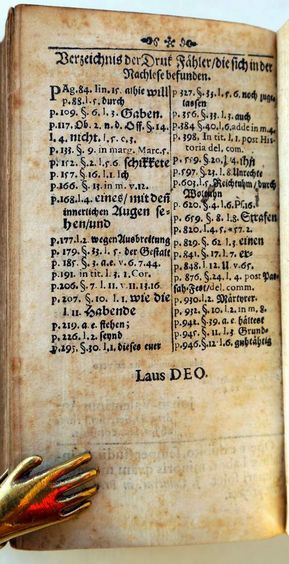 Verzeichnis der Druk Fähler/die sich in der
Nachlese befunden.
PAg. 84. lin. 15. alhie will
p. 88. l. 5. durch
p. 109. §. 6. l. 3. Gaben.
p. 117. Ob. 2. n. d. Off. §. 14.
l. 4. nicht. l. 5. c. 3.
p. 133. §. 9. in marg. Marc. 5.
p. 152. §. 2. l. 5. 6. schikkete
p. 157. §. 16. l. 1. ich
p. 166. §. 13. in m. v. 12.
p. 168. l. 4. eines/ mit den
innerlichen Augen se-
hen/und
p. 177. l. 2. wegen Ausbreitung
p. 179. §. 33. l. 5. der Gestalt
p. 185. §. 3. a. e. v. 6. 7. 44.
p. 191. in tit. l. 3. 1. Cor.
p. 206. §. 7. l. 11. v. 11. 13. 16.
p. 207. §. 10. l. 1. wie die
l. 11. Habende
p. 219. a. e. stehen;
p. 226. l. 2. seynd
p. 295. §. 30. l. 1. dieses euer
p. 327. §. 35. l. 5. 6. noch zuge-
lassen
p. 356. §. 33. l. 3. auch
p. 384. §. 40. l. 6. adde in m. 4.
p. 398. In tit. l. 1. post Hi-
storia del. com.
p. 559. §. 20. l. 4. ihn
p. 597. §. 23. l. 8. Unrecht
p. 603. l. 5. Reichtuhm/durch
Woltuhn
p. 620. §. 4. l. 6. Ps. 16.
p. 659. §. 8. l. 8. Strafen
p. 820. l. 4. 5. + 57. 2.
p. 829. §. 62. l. 3. einen
p. 841. §. 17. l. 7. er-
p. 848. l. 12. 11. v. 65.
p. 876. §. 24. l. 4. post Pas-
sah-Fest/ del. comm.
p. 930. l. 2. Märtyrer.
p. 932. §. 10. l. 2. in m. 8.
p. 942. §. 39. a. e. hältest
p. 945. §. 11. l. 3. Grund-
p. 946. §. 12. l. 6. guhtähtig
Laus DEO.